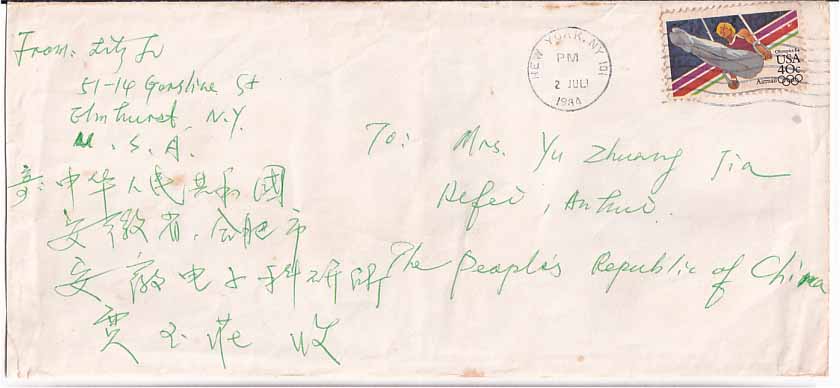 From: Litz Fu
51-14 Gorsline St
Elmhurst, N.Y.
U.S.A.
NEW YORK, NY 101
PM
2 JUL
1984
Olympics 84
USA
40c
Airmail
To: Mrs. Yu Zhuang Jia
Hefei, Anhui.
The People's Republic of China
寄: 中华人民共和國
安徽省,合肥市
安徽电子科研所
贾玉莊 收